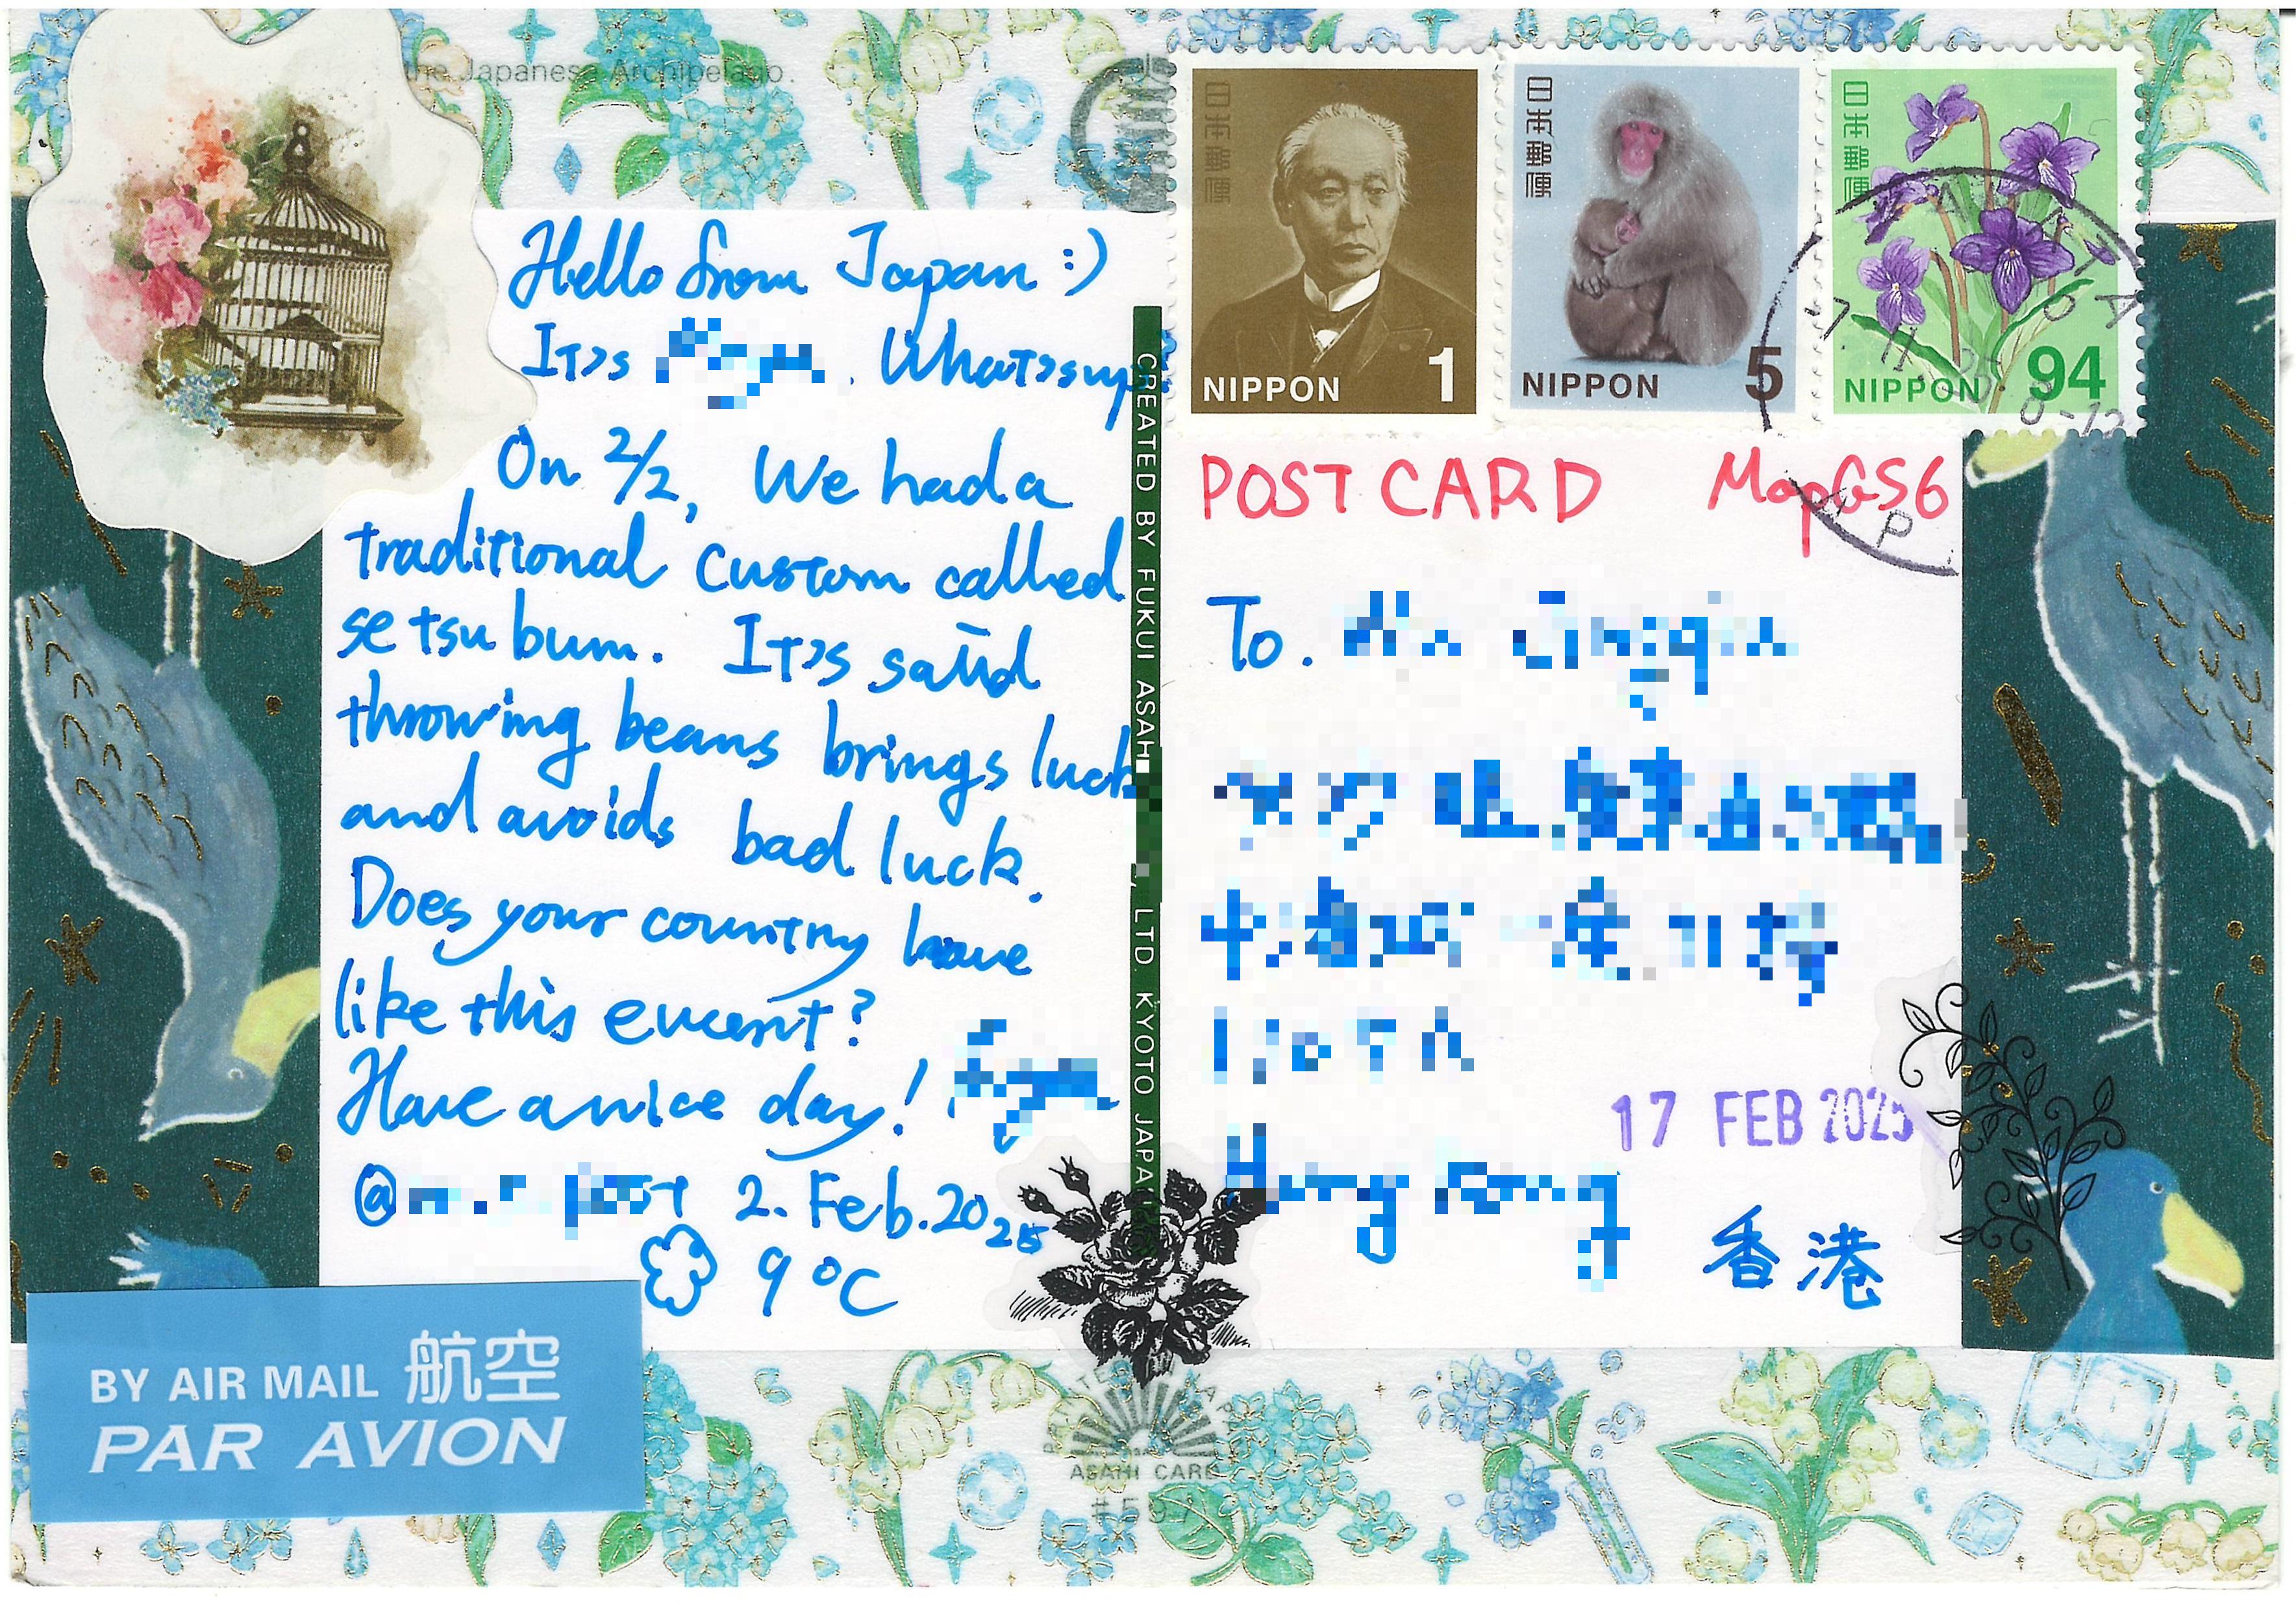 the Japanese Archipelago.
Hello from Japan :)
It's . What's up
On 2/2, We had a
traditional custom called
setsubum. It's said
throwing beans brings luck
and avoids bad luck.
Does your country have
like this event?
Have a nice day!
@ 2. Feb. 2025
9°C
BY AIR MAIL 航空
PAR AVION
CREATED BY FUKUI ASAHI , LTD. KYOTO JAPAN
ASAHI CARD
日本郵便
NIPPON 1
日本郵便
NIPPON 5
日本郵便
NIPPON 94
POST CARD MopGS6
To.
17 FEB 2025
香港